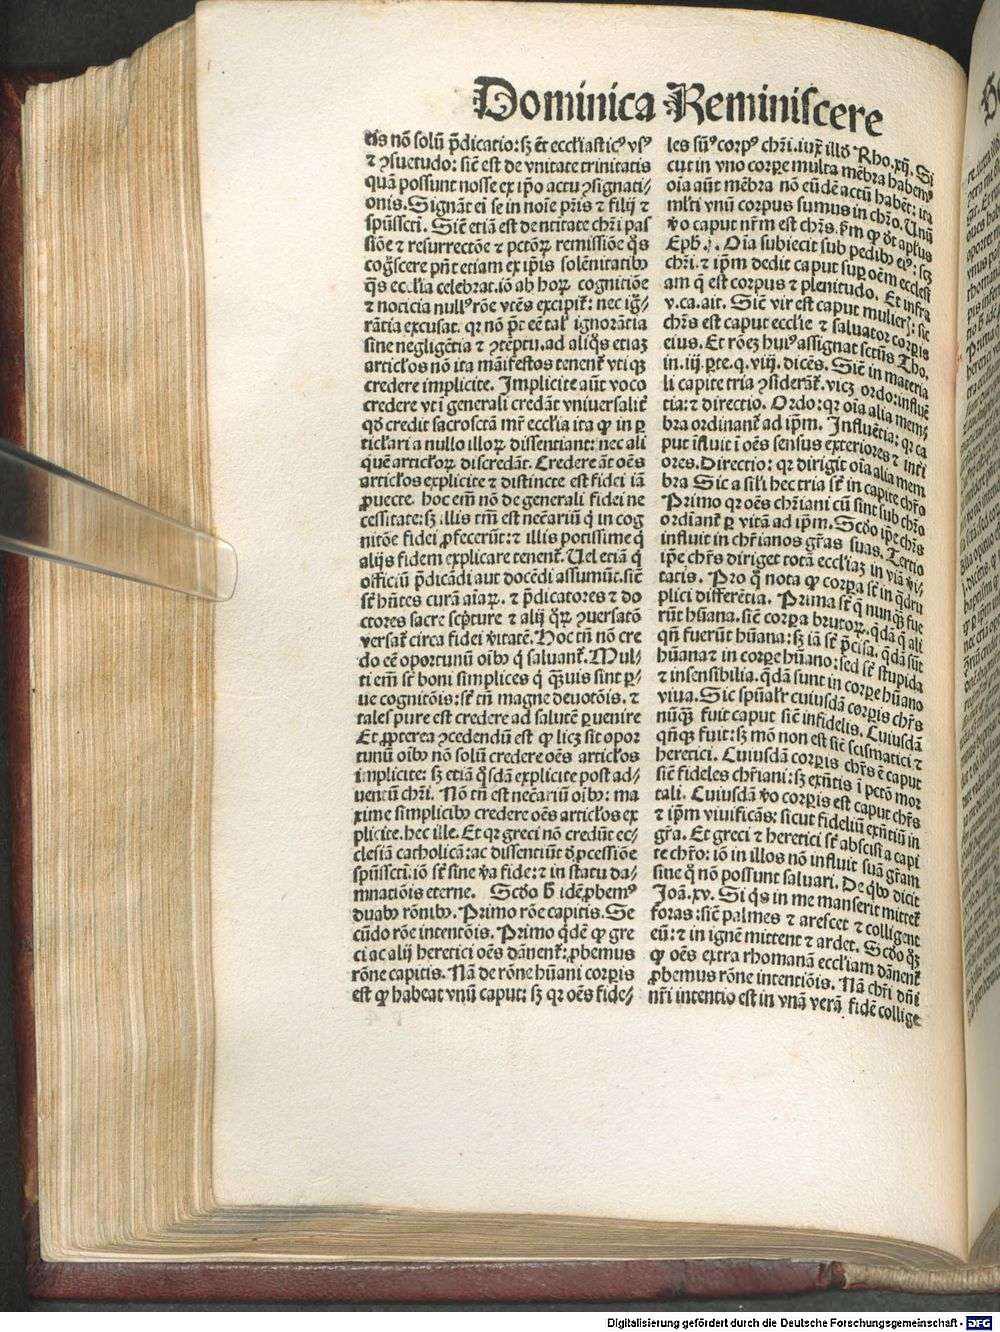 Dominica Reminiscere
tis nõ solũ p̃dicatio: sꝫ ẽt eccl̃iasticꝰ vsꝰ
⁊ ꝯsuetudo: sic̃ est de vnitate trinitatis
quã possunt nosse ex ip̃o actu ꝯsignati/
onis. Signãt em̃ se in noĩe pr̃is ⁊ filij ⁊
sp̃ũsscti. Sic̃ etiã est de ñtitate chr̃i pas
siõe ⁊ resurrectõe ⁊ pctõꝝ remissiõe q̃s
cog̃scere pñt etiam ex ip̃is solẽnitatibꝰ
q̃s eccl̃ia celebrat. iõ ab hoꝝ cognitiõe
⁊ noticia nullꝰ rõe vtẽs excipit̃: nec ig̃/
rãtia excusat. qr nõ p̃t eẽ tal̃ ignorãtia
sine negligẽtia ⁊ ꝯtẽptu. ad aliq̃s etiaꝫ
articl̃os nõ ita mãifestos tenent̃ vtiqꝫ
credere implicite. Implicite aũt voco
credere vt ĩ generali credãt vniuersalit̃
qđ credit sacrosctã mr̃ eccl̃ia ita ꝙ in ꝑ
ticl̃ari a nullo illoꝝ dissentiant: nec ali
quẽ articl̃oꝝ discredãt. Credere aũt oẽs
articl̃os explicite ⁊ distincte est fidei iã
ꝓuecte. hoc em̃ nõ de generali fidei ne
cessitate: sꝫ illis tm̃ est nec̃ariũ q̃ in cog
nitõe fidei ꝓfecerũt: ⁊ illis potissime q̃
alijs fidem explicare tenent̃. Uel etiã q̃
officiũ p̃dicãdi aut docẽdi assumũt. sic̃
st̃ hñtes curã aĩaꝝ. ⁊ p̃dicatores ⁊ do
ctores sacre scp̃ture ⁊ alij q̃ꝝ ꝯuersatõ
versat̃ circa fidei ṽitatẽ. Hoc tñ nõ cre
do eẽ oportunũ oĩbꝰ q̃ saluant̃. Mul/
ti em̃ st̃ boni simplices q̃ q̃uis sint ꝑ/
ue cognitõis: st̃ tñ magne deuotõis. ⁊
tales pure est credere ad salutẽ ꝑuenire
Et ꝓpterea ꝯcedendũ est ꝙ licꝫ sit opor
tunũ oĩbꝰ nõ solũ credere oẽs articl̃os
implicite: sꝫ etiã q̃sdã explicite post ad/
uentũ chr̃i. Nõ tñ est nec̃ariũ oĩbꝰ: ma
xime simplicibꝰ credere oẽs articl̃os ex
plicite. hec ille. Et qr greci nõ credũt ec/
clesiã catholicã: ac dissentiũt đ ꝓcessiõe
sp̃ũsscti: iõ st̃ sine ṽa fide: ⁊ in statu da/
mnatiõis eterne. Scđo h̃ idẽ ꝓbemꝰ
duabꝰ rõnibꝰ. Primo rõe capitis. Se
cũdo rõe intentõis. Primo q̃dẽ ꝙ gre
ci ac alij heretici oẽs dãnent̃: ꝓbemus
rõne capitis. Nã de rõne hũani corꝑis
est ꝙ habeat vnũ caput: sꝫ qr oẽs fide/
les sũtꝰ corpꝰ chr̃i. iux̃ illđ Rho. xij. Si
cut in vno corꝑe multa mẽbra habemꝰ
oĩa aũt mẽbra nõ eũdẽ actũ habẽt: ita
ml̃ti vnũ corpus sumus in chr̃o. Unũ
ṽo caput nr̃m est chr̃s. f̃m ꝙ đt apl̃us
Eph. j. Oĩa subiecit sub pedibꝰ eiꝰ: sꝫ
chr̃i. ⁊ ip̃m dedit caput suꝑ oẽm ecclesi
am q̃ est corpus ⁊ plenitudo. Et infra
v. ca. ait. Sic̃ vir est caput mulier̃: sic
chr̃s est caput eccl̃ie ⁊ saluator corꝑis
eius. Et rõeꝫ huiꝰ assignat sctũs Tho.
in. iij. ꝑte. q. viij. dicẽs. Sic̃ in materia
li capite tria ꝯsiderãt̃. vicꝫ ordo: influẽ
tia: ⁊ directio. Ordo: qr oĩa alia mem/
bra ordinant̃ ad ip̃m. Influẽtia: qr ca
put ĩfluit ĩ oẽs sensus exteriores ⁊ inti
ores. Directio: qr dirigit oĩa alia mem
bra Sic a sil̃i hec tria st̃ in capite chr̃o
Primo qr oẽs chr̃iani cũ sint sub chr̃o
ordĩant̃ ꝑ vitã ad ip̃m. Scđo ip̃e chr̃s
influit in chr̃ianos gr̃as suas. Tertio
ip̃e chr̃s diriget totã eccl̃iaꝫ in viã ṽi/
tatis. Pro q̃ nota ꝙ corꝑa st̃ in q̃dru
plici differẽtia. Prima st̃ q̃ nunqꝫ fue
rũt hũana. sic̃ corꝑa brutoꝝ. q̃dã q̃ ali
qñ fuerũt hũana: sꝫ iã st̃ p̃cisa. q̃dã sũt
hũana ⁊ in corꝑe hũano: sed st̃ stupida
⁊ insensibilia. q̃dã sunt in corꝑe hũano
viua. Sic sp̃ũalr̃ cuiusdã corꝑis chr̃s
nũqꝫ fuit caput sic̃ infidelis. Cuiusdã
qñqꝫ fuit: sꝫ mõ non est sic̃ scismatici ⁊
heretici. Cuiusdã corꝑis chr̃s ẽ caput
sic̃ fideles chr̃iani: sꝫ exñtis ĩ pctõ mor
tali. Cuiusdã ṽo corꝑis est caput chr̃s
⁊ ip̃m viuificãs: sicut fideliũ exñtiũ in
gr̃a. Et greci ⁊ heretici st̃ abscisi a capi
te chr̃o: iõ in illos nõ influit suã gr̃am
sine q̃ nõ possunt saluari. De q̃bꝰ dicit
Joã. xv. Si q̃s in me manserit mittet̃
foras: sic̃ palmes ⁊ arescet ⁊ colligent
eũ: ⁊ in ignẽ mittent ⁊ ardet. Scđo q̃ꝫ
ꝙ oẽs extra rhomanã eccl̃iam dãnent̃
ꝓbemus rõne intentiõis. Nã chr̃i dñi
nr̃i intentio est in vnã verã fidẽ collige
Digitalisierung gefördert durch die Deutsche Forschungsgemeinschaft - DFG